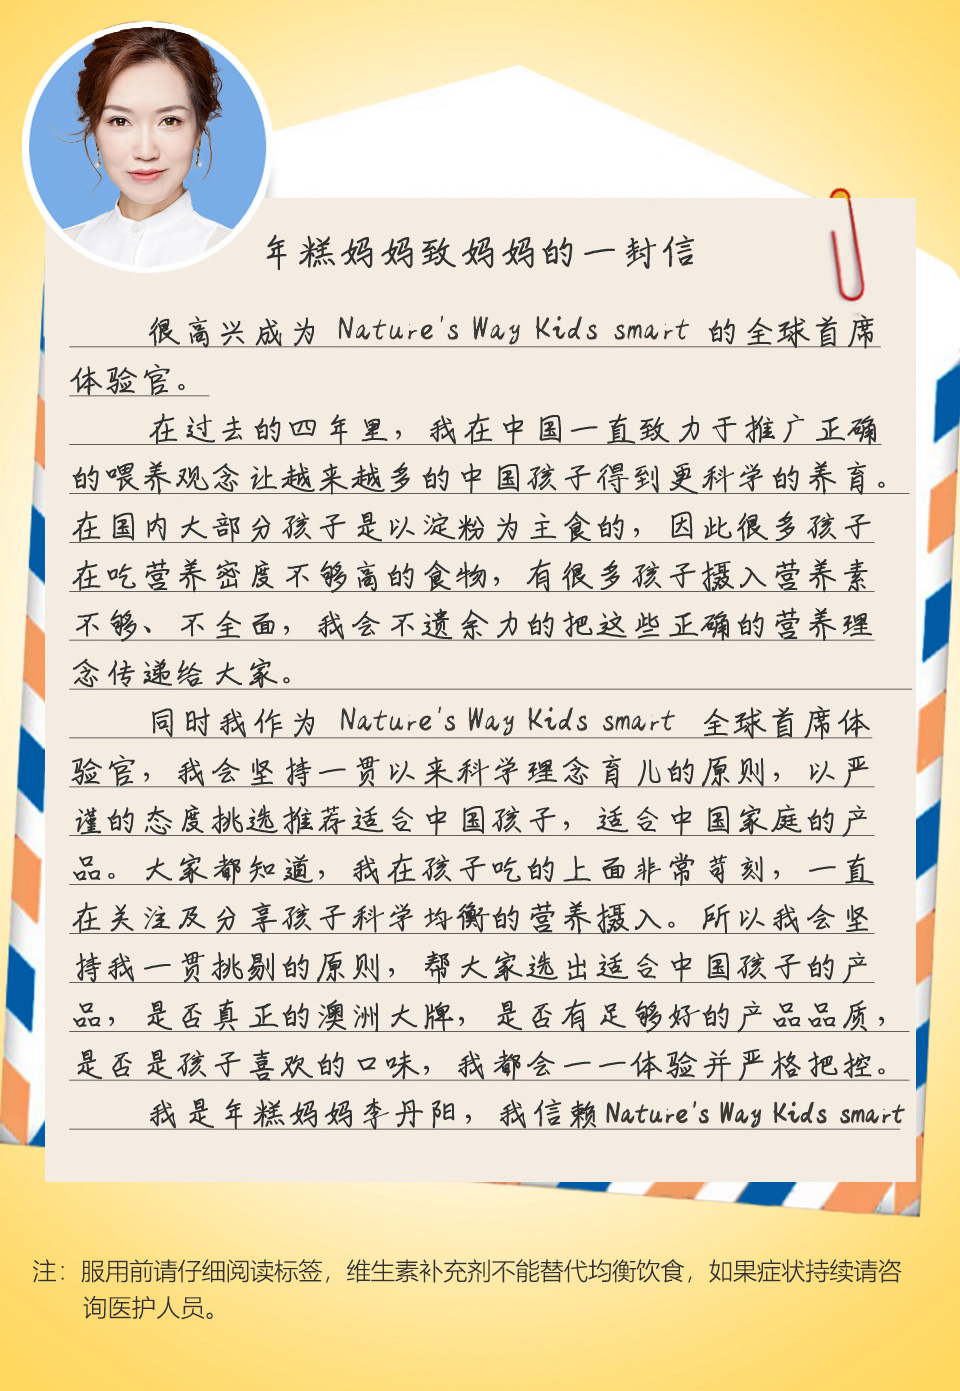 年糕妈妈致妈妈的一封信
很高兴成为 Nature's Way Kids smart 的全球首席
体验官。
在过去的四年里，我在中国一直致力于推广正确
的喂养观念让越来越多的中国孩子得到更科学的养育。
在国内大部分孩子是以淀粉为主食的，因此很多孩子
在吃营养密度不够高的食物，有很多孩子摄入营养素
不够、不全面，我会不遗余力的把这些正确的营养理
念传递给大家。
同时我作为 Nature's Way Kids smart 全球首席体
验官，我会坚持一贯以来科学理念育儿的原则，以严
谨的态度挑选推荐适合中国孩子，适合中国家庭的产
品。大家都知道，我在孩子吃的上面非常苛刻，一直
在关注及分享孩子科学均衡的营养摄入。所以我会坚
持我一贯挑剔的原则，帮大家选出适合中国孩子的产
品，是否真正的澳洲大牌，是否有足够好的产品品质，
是否是孩子喜欢的口味，我都会一一体验并严格把控。
我是年糕妈妈李丹阳，我信赖Nature's Way Kids smart
注：服用前请仔细阅读标签，维生素补充剂不能替代均衡饮食，如果症状持续请咨
询医护人员。